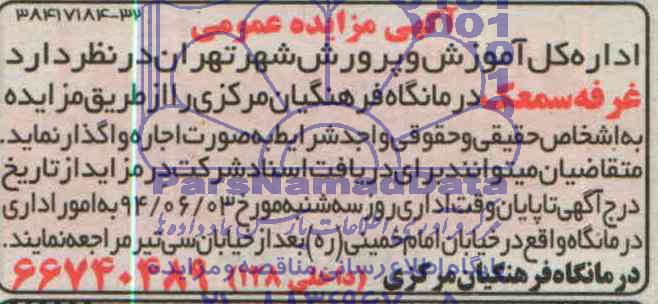 ۳۸۴۱۷۱۸۴-۳۲
آگهی مزایده عمومی
اداره کل آموزش و پرورش شهر تهران در نظر دارد
غرفه سمعک درمانگاه فرهنگیان مرکزی را از طریق مزایده
به اشخاص حقیقی و حقوقی واجد شرایط به صورت اجاره واگذار نماید.
متقاضیان میتوانند برای دریافت اسناد شرکت در مزاید از تاریخ
درج آگهی تا پایان وقت اداری روز سه شنبه مورخ ۹۴/۰۶/۰۳ به امور اداری
درمانگاه واقع در خیابان امام خمینی (ره) بعد از خیابان سی تیر مراجعه نمایند.
درمانگاه فرهنگیان مرکزی (داخلی ۱۲۸) ۶۶۷۴۰۴۸۹
ParsNamadData
پایگاه اطلاع رسانی مناقصه و مزایده